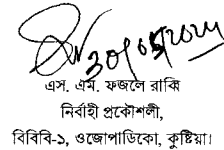 ৩০/০৫/২০২৪
এস. এম. ফজলে রাব্বি
নির্বাহী প্রকৌশলী,
বিবিবি-১, ওজোপাডিকো, কুষ্টিয়া।